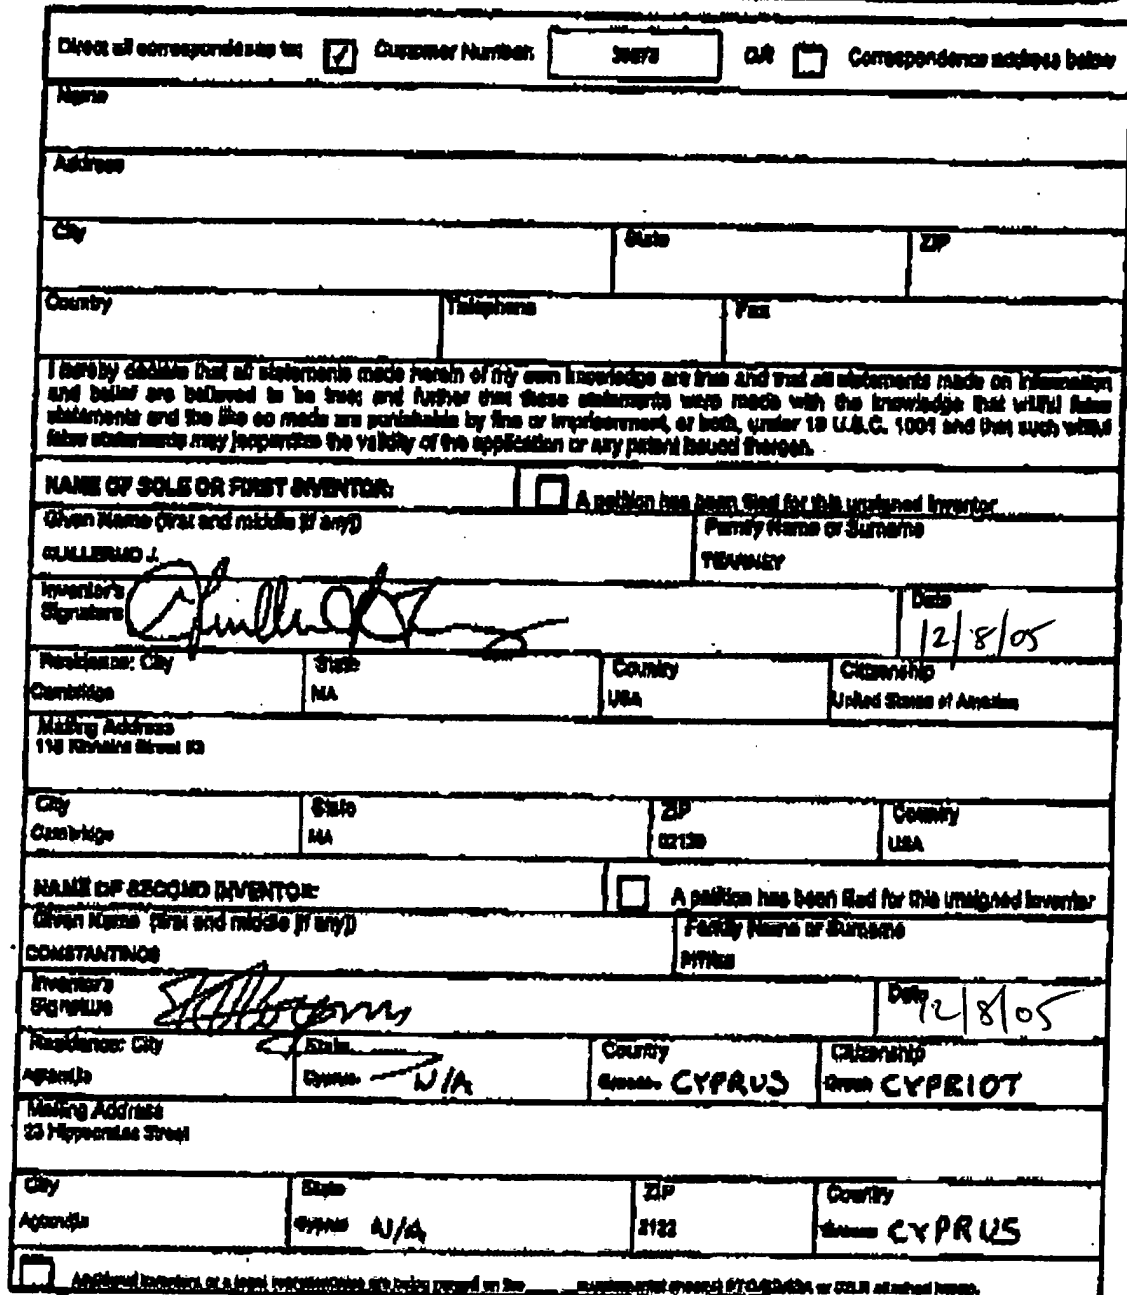 Direct all correspondence to: ✓ Customer Number: OR Correspondence address below
Name
Address
City State ZIP
Country Telephone Fax
I hereby declare that all statements made herein of my own knowledge are true and that all statements made on information
and belief are believed to be true; and further that these statements were made with the knowledge that willful false
statements and the like so made are punishable by fine or imprisonment, or both, under 18 U.S.C. 1001 and that such willful
false statements may jeopardize the validity of the application or any patent issued thereon.
NAME OF SOLE OR FIRST INVENTOR: A petition has been filed for this unsigned inventor
Given Name (first and middle [if any]) Family Name or Surname
GUILLERMO J. TEARNEY
Inventor's Signature Date 12/8/05
Residence: City State Country Citizenship
Cambridge MA USA United States of America
Mailing Address
Street
City State ZIP Country
Cambridge MA 02139 USA
NAME OF SECOND INVENTOR: A petition has been filed for this unsigned inventor
Given Name (first and middle [if any]) Family Name or Surname
CONSTANTINOS PITRIS
Inventor's Signature Date 12/8/05
Residence: City State Country Citizenship
Cyprus N/A CYPRUS Greek CYPRIOT
Mailing Address
23 Hippocrates Street
City State ZIP Country
Cyprus N/A 2122 CYPRUS
Additional inventors or a legal representative are being named on the ___ supplemental sheet(s) PTO/SB/02A or 02LR attached hereto.